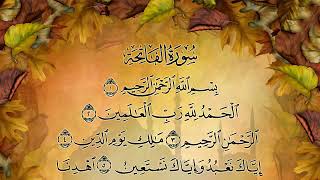 سُورَةُ الفَاتِحَةِ
بِسْمِ ٱللَّهِ ٱلرَّحْمَٰنِ ٱلرَّحِيمِ ۝١
ٱلْحَمْدُ لِلَّهِ رَبِّ ٱلْعَٰلَمِينَ ۝٢
ٱلرَّحْمَٰنِ ٱلرَّحِيمِ ۝٣ مَٰلِكِ يَوْمِ ٱلدِّينِ ۝٤
إِيَّاكَ نَعْبُدُ وَإِيَّاكَ نَسْتَعِينُ ۝٥ ٱهْدِنَا